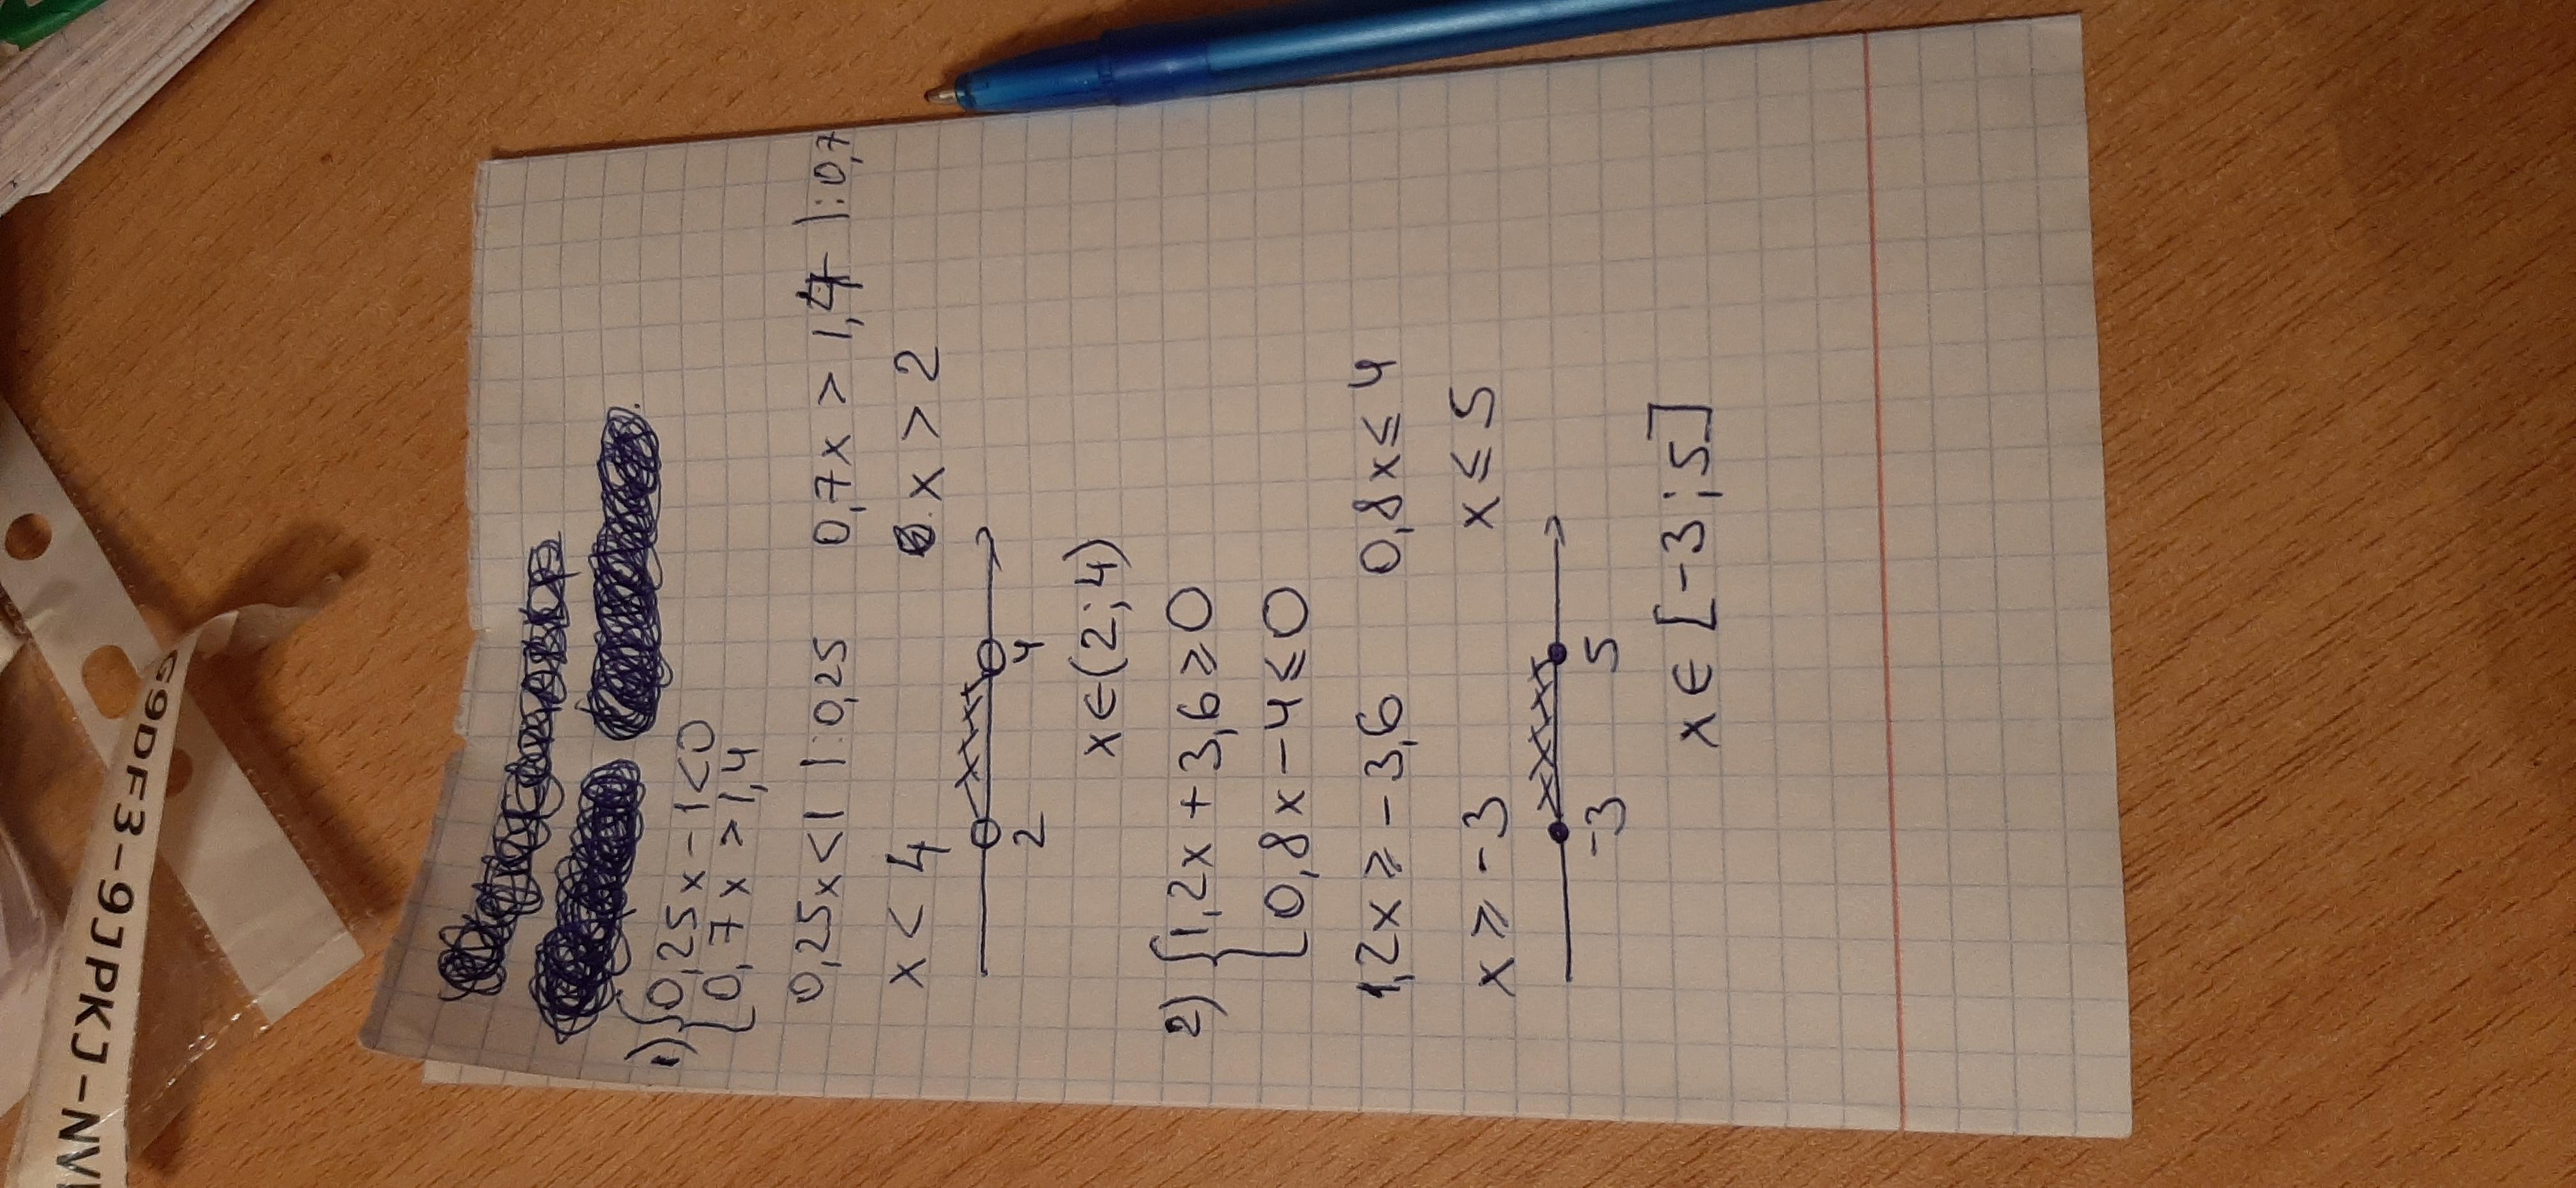 1) { 0,25x - 1 < 0
0,7x > 1,4
0,25x < 1 | : 0,25 0,7x > 1,4 | : 0,7
x < 4 x > 2
2 4
x ∈ (2; 4)
2) { 1,2x + 3,6 ⩾ 0
0,8x - 4 ⩽ 0
1,2x ⩾ -3,6 0,8x ≤ 4
x ⩾ -3 x ≤ 5
-3 5
x ∈ [-3; 5]
G9DF3-9JPKJ-NV